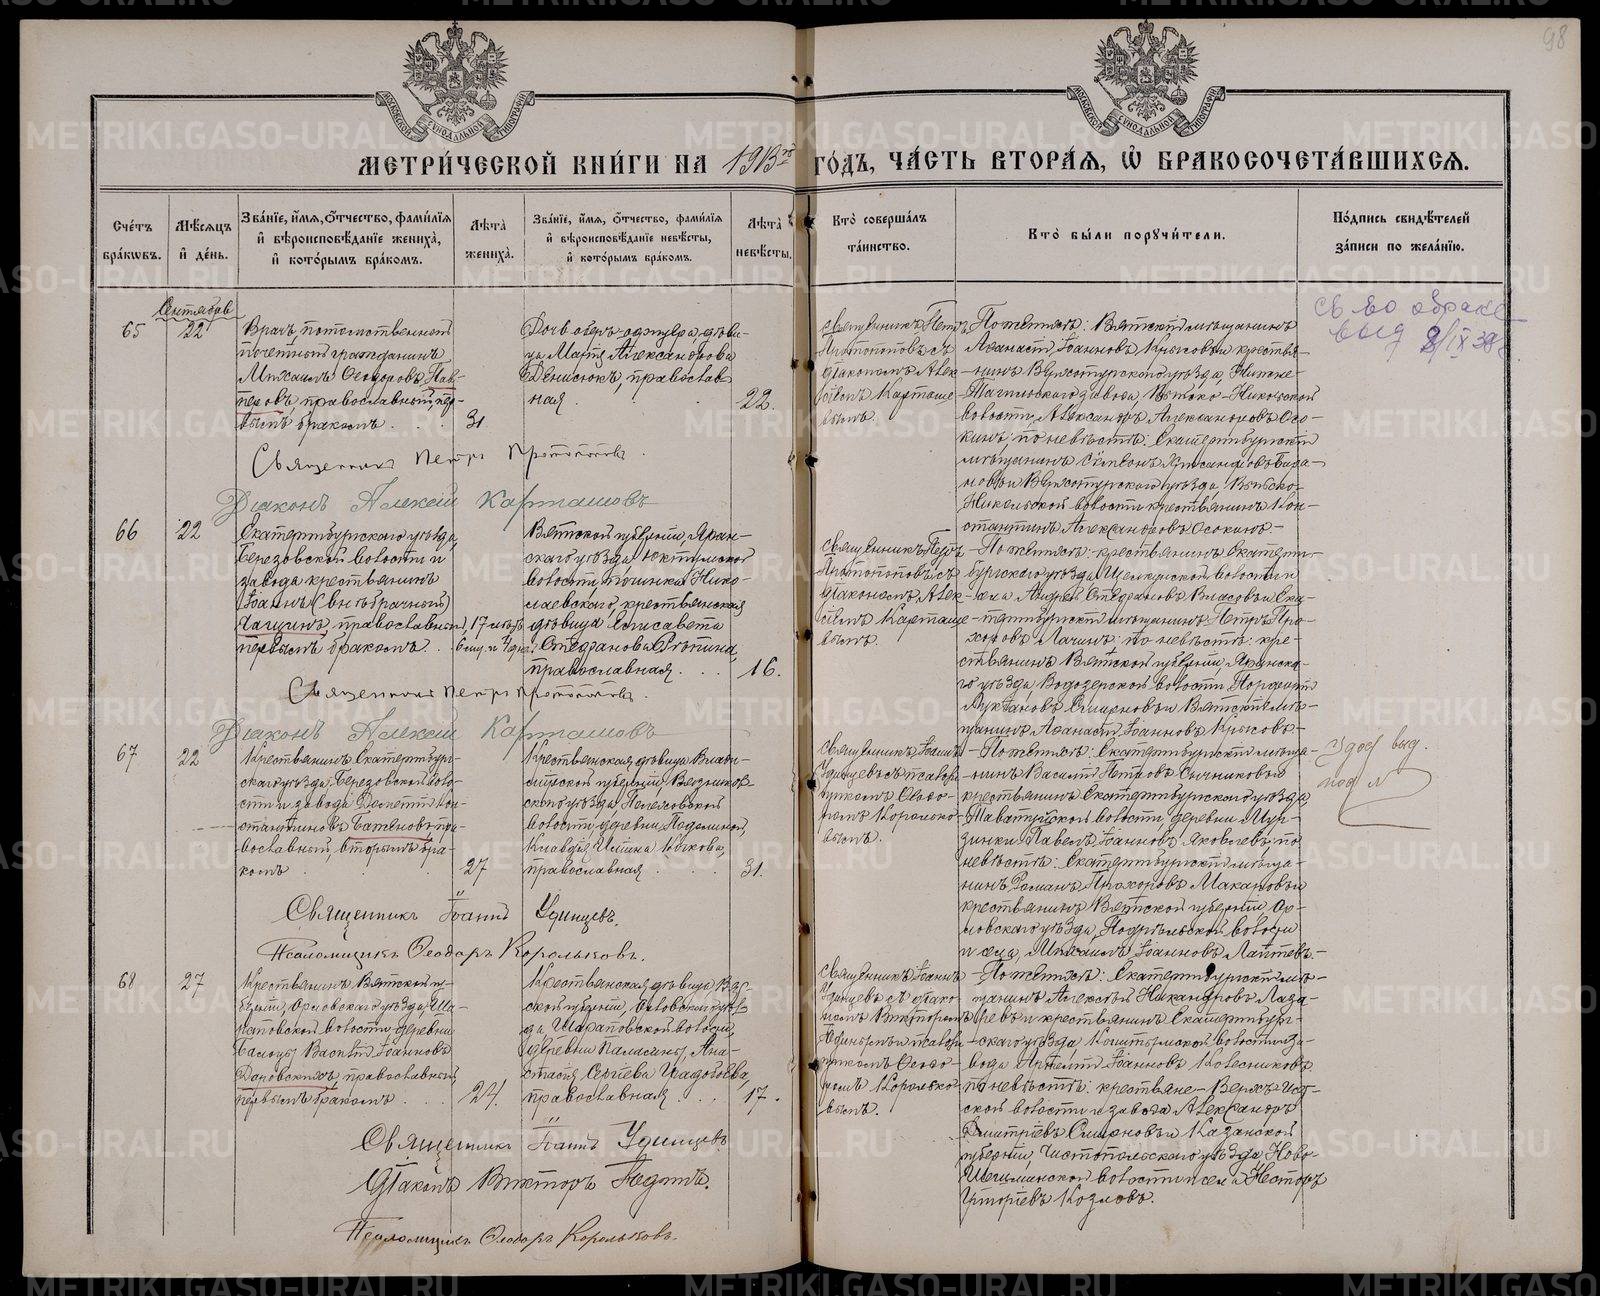 98
МЕТРИ́ЧЕСКОЙ КНИ́ГИ НА 1913й ГО́ДЪ, ЧА́СТЬ ВТОРА́Я, Ѡ҆ БРАКОСОЧЕТА́ВШИХСЯ.
Сче́тъ бра́кѡвъ.
Мѣ́сяцъ и҆ де́нь.
Зва́нїе, и҆́мя, ѻ҆́тчество, фами́лїя и҆ вѣроисповѣ́данїе жениха̀, и҆ кото́рымъ бра́комъ.
Лѣ́та̀ жениха̀.
Зва́нїе, и҆́мя, ѻ҆́тчество, фами́лїя и҆ вѣроисповѣ́данїе невѣ́сты, и҆ кото́рымъ бра́комъ.
Лѣ́та̀ невѣ́сты.
Кто̀ соверша́лъ та́инство.
Кто̀ бы́ли порꙋчи́тели.
По́дпись свидѣ́телей за́писи по жела́нїю.
Сентябрь
65
22
Врачъ, потомственный
почетный гражданинъ
Михаилъ Ѳеодоровъ
православный, пер-
вымъ бракомъ.
31
Дочь
ца Марія Александрова
Денисюкъ, православ
ная
22
Священникъ Петръ
Протопоповъ съ
діакономъ Алек-
сіемъ Карташе-
вымъ.
По женихѣ: Вятскій мѣщанинъ
Аѳанасій Іоанновъ Крысовъ и крестья-
нинъ Верхотурскаго уѣзда, Нижне-
Тагильскаго завода, Выйско-Никольской
волости, Александръ Александровъ Осо-
кинъ; по невѣстѣ: Екатеринбургскій
мѣщанинъ Симеонъ
Верхотурскаго уѣзда, Выйско-
Никольской волости крестьянинъ Кон-
стантинъ Александровъ Осокинъ.
Священникъ Петръ Протопоповъ.
Діаконъ Алексій Карташовъ
66
22
Екатеринбургскаго уѣзда,
Березовской волости и
завода крестьянинъ
Іоаннъ (внѣбрачный)
православный,
первымъ бракомъ.
17 лѣтъ
6 мѣс. и
Вятской губерніи, Яран-
скаго уѣзда
волости, починка Нико-
лаевскаго, крестьянская
дѣвица Елисавета
Стефанова Рѣпина,
православная.
16.
Священникъ Петръ
Протопоповъ съ
діакономъ Алек-
сіемъ Карташе-
вымъ.
По женихѣ: крестьянинъ Екатерин-
бургскаго уѣзда, Щелкунской волости и
села Андрей Стефановъ Власовъ и Ека-
теринбургскій мѣщанинъ Петръ Про-
хоровъ Лагинъ; по невѣстѣ: кре-
стьянинъ Вятской губерніи, Яранска-
го уѣзда, Водозерской волости, Порфирій
Лукіановъ Смирновъ и Вятскій мѣ-
щанинъ Аѳанасій Іоанновъ Крысовъ.
Священникъ Петръ Протопоповъ.
Діаконъ Алексій Карташовъ
67
22
Крестьянинъ Екатеринбург-
скаго уѣзда, Березовской воло-
сти и завода Дометій Кон-
стантиновъ Баженовъ, пра-
вославный, вторымъ бра-
комъ
27
Крестьянская дѣвица Влади-
мірской губерніи, Вязников-
скаго уѣзда
волости, деревни
Клавдія
православная
31.
Священникъ Іоаннъ
Удинцевъ съ псалом-
щикомъ Ѳеодо-
ромъ Королько-
вымъ.
По женихѣ: Екатеринбургскій мѣща-
нинъ Василій Петровъ Сычниковъ и
крестьянинъ Екатеринбургскаго уѣзда,
Таватуйской волости, деревни Мур-
зинки Павелъ Іоанновъ Яковлевъ; по
невѣстѣ: Екатеринбургскій мѣща-
нинъ Романъ Прохоровъ Макаровъ и
крестьянинъ Вятской губерніи Ор-
ловскаго уѣзда,
и села, Михаилъ Іоанновъ Лаптевъ.
Священникъ Іоаннъ Удинцевъ.
Псаломщикъ Ѳеодоръ Корольковъ.
68
27
Крестьянинъ Вятской гу-
берніи, Орловскаго уѣзда, Ша-
рановской волости, деревни
Василій Іоанновъ
православный,
первымъ бракомъ
24.
Крестьянская дѣвица Вят-
ской губерніи, Орловскаго уѣз-
да Шарановской волости,
деревни Паласины, Ана-
стасія Сергіева
православная.
17.
Священникъ Іоаннъ
Удинцевъ съ діако-
номъ Викторомъ
и псалом-
щикомъ Ѳеодо-
ромъ Королько-
вымъ.
По женихѣ: Екатеринбургскій мѣ-
щанинъ Алексѣй Никандровъ Лаза-
ревъ и крестьянинъ Екатеринбург-
скаго уѣзда, Кыштымской волости за-
вода Арсеній Іоанновъ Колесниковъ;
по невѣстѣ: крестьяне Верхъ-Исет-
ской волости и завода Александръ
Дмитріевъ Смирновъ и Казанской
губерніи, Чистопольскаго уѣзда, Ново-
Шешминской волости и села Несторъ
Григоріевъ Козловъ.
Священникъ Іоаннъ Удинцевъ
Діаконъ Викторъ
Псаломщикъ Ѳеодоръ Корольковъ.
METRIKI.GASO-URAL.RU